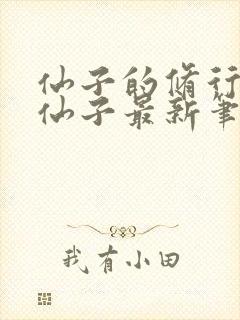 仙子的脩行
仙子最新筆
我有小田